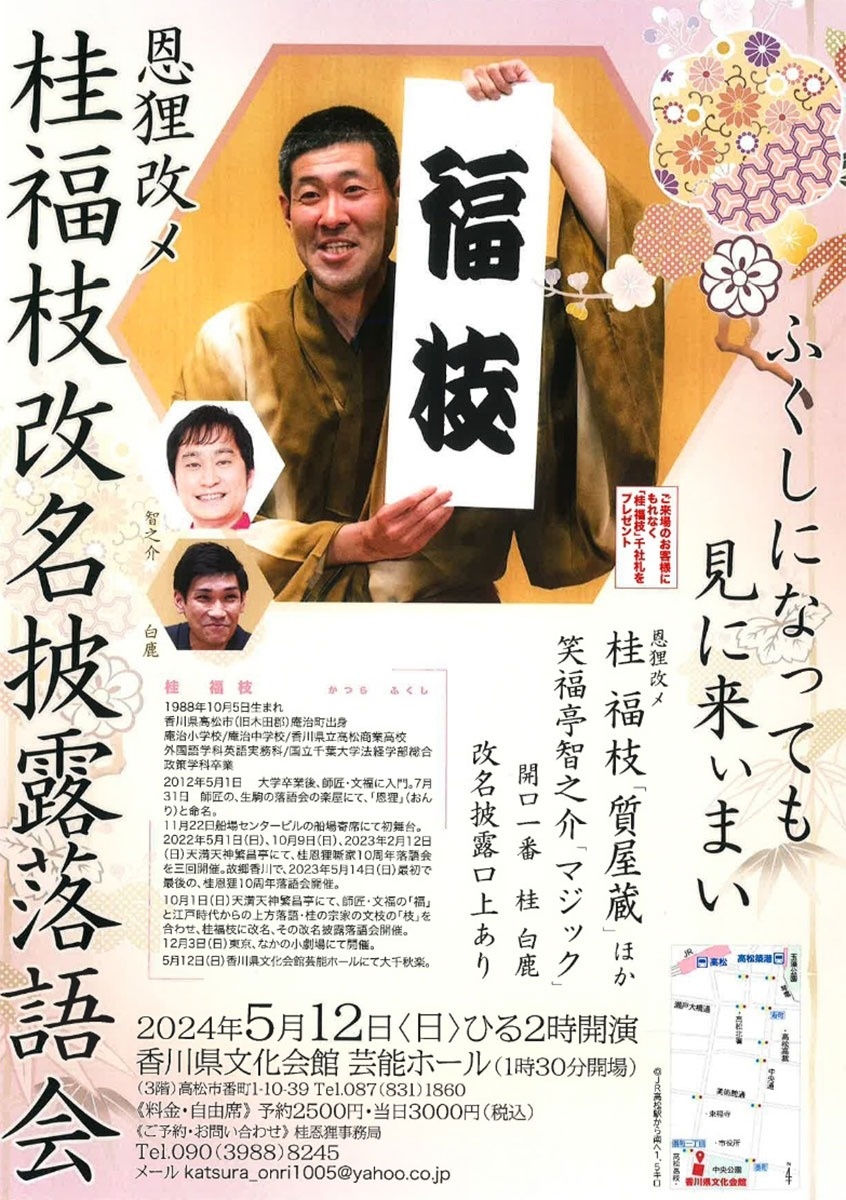 恩狸改メ
桂福枝改名披露落語会
福枝
ふくしになっても
見に来ぃまい
ご来場のお客様に
もれなく
「桂 福枝」千社札を
プレゼント
智之介
白鹿
恩狸改メ
桂 福枝「質屋蔵」ほか
笑福亭智之介「マジック」
開口一番 桂 白鹿
改名披露口上あり
桂 福枝 かつら ふくし
1988年10月5日生まれ
香川県高松市(旧木田郡)庵治町出身
庵治小学校/庵治中学校/香川県立高松商業高校
外国語学科英語実務科/国立千葉大学法経学部総合
政策学科卒業
2012年5月1日 大学卒業後、師匠・文福に入門。7月
31日 師匠の、生駒の落語会の楽屋にて、「恩狸」(おん
り)と命名。
11月22日船場センタービルの船場寄席にて初舞台。
2022年5月1日(日)、10月9日(日)、2023年2月12日
(日)天満天神繁昌亭にて、桂恩狸噺家10周年落語会
を三回開催。故郷香川で、2023年5月14日(日)最初で
最後の、桂恩狸10周年落語会開催。
10月1日(日)天満天神繁昌亭にて、師匠・文福の「福」
と江戸時代からの上方落語・桂の宗家の文枝の「枝」を
合わせ、桂福枝に改名、その改名披露落語会開催。
12月3日(日)東京、なかの小劇場にて開催。
5月12日(日)香川県文化会館芸能ホールにて大千秋楽。
2024年5月12日〈日〉ひる2時開演
香川県文化会館 芸能ホール(1時30分開場)
(3階)高松市番町1-10-39 Tel.087(831)1860
《料金・自由席》予約2500円・当日3000円(税込)
《ご予約・お問い合わせ》桂恩狸事務局
Tel.090(3988)8245
メール katsura_onri1005@yahoo.co.jp
JR
高松
高松築港
玉藻公園
瀬戸大橋通
寿町
高松北署
・高松高裁
中央通
美術館通
・東福寺
番町一丁目
・市役所
中央公園
番町
高松高校・
香川県文化会館
N
◎JR高松駅から南へ1.5キロ